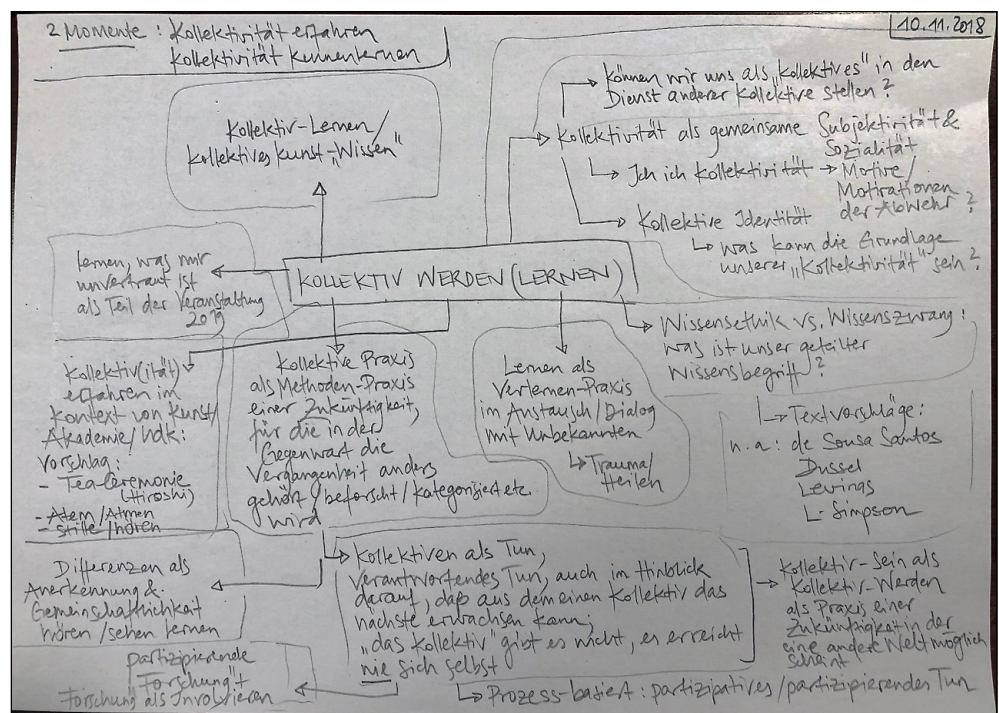 10.11.2018
2 Momente : Kollektivität erfahren
Kollektivität kennenlernen
Kollektiv-Lernen/
kollektives Kunst-„Wissen"
können wir uns als „Kollektives" in den
Dienst anderer Kollektive stellen?
Kollektivität als gemeinsame Subjektivität &
Sozialität
↳ Ich ich Kollektivität → Motive/
Motivationen
der Abwehr?
Kollektive Identität
↳ was kann die Grundlage
unserer „Kollektivität" sein?
lernen, was mir
unvertraut ist
als Teil der Veranstaltung
2019
KOLLEKTIV WERDEN (LERNEN)
Wissensethik vs. Wissenszwang:
was ist unser geteilter
Wissensbegriff?
↳ Textvorschläge:
u.a: de Sousa Santos
Dussel
Levinas
L. Simpson
Kollektiv(ität)
erfahren im
Kontext von Kunst/
Akademie/UdK:
Vorschlag:
- Teaceremonie
(Hiroshi)
- Atem/Atmen
- Stille/hören
Kollektive Praxis
als Methoden-Praxis
einer Zukünftigkeit,
für die in der
Gegenwart die
Vergangenheit anders
gehört/beforscht/kategorisiert etc.
wird
Lernen als
Verlernen-Praxis
im Austausch/Dialog
mit Unbekannten
↳ Trauma/
Heilen
Differenzen als
Anerkennung &
Gemeinschaftlichkeit
hören/sehen lernen
Kollektiven als Tun,
Verantwortendes Tun, auch im Hinblick
darauf, daß aus dem einen Kollektiv das
nächste erwachsen kann,
„das Kollektiv" gibt es nicht, es erreicht
nie sich selbst
Kollektiv-Sein als
Kollektiv-Werden
als Praxis einer
Zukünftigkeit in der
eine andere Welt möglich
scheint
partizipierende
„Forschung"+
Forschung als Involvieren
↳ Prozess-basiert: partizipatives/partizipierendes Tun